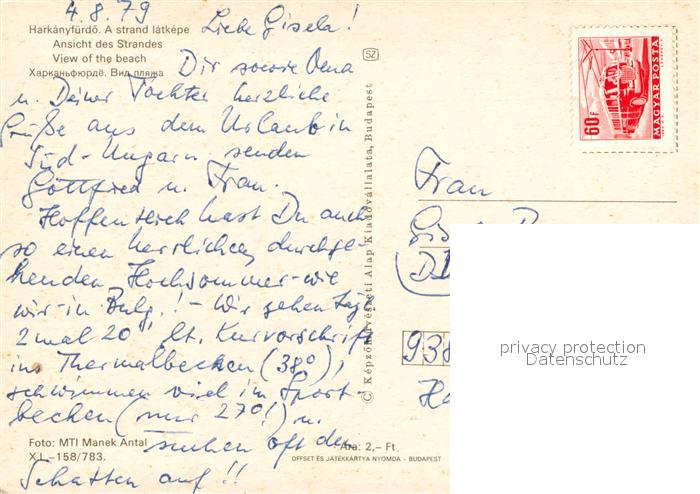 4.8.79
Harkányfürdő. A strand látképe
Ansicht des Strandes
View of the beach
Харканьфюрдё. Вид пляжа
Liebe Gisela!
Dir sowie Oma
u. Deiner Tochter herzliche
Grüße aus dem Urlaub in
Süd-Ungarn senden
Gottfried u. Frau.
Hoffentlich hast Du auch
so einen herrlichen durchge-
henden Hochsommer - wie
wir - in Bulg.! - Wir gehen tägl.
2 mal 20' lt. Kurvorschrift
ins Thermalbecken (38°),
schwimmen viel im Sport-
becken (nur 27°!) u.
suchen oft den
Schatten auf!!
Foto: MTI Manek Antal
X.I.-158/783.
Ára: 2,- Ft
OFFSET ÉS JÁTÉKKÁRTYA NYOMDA - BUDAPEST
© Képzőművészeti Alap Kiadóvállalata, Budapest
SZ
60f
MAGYAR POSTA
Frau
938
privacy protection
Datenschutz